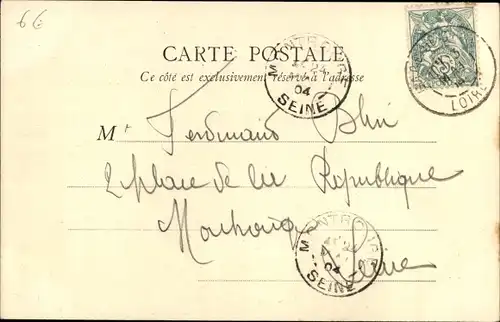 6 €
CARTE POSTALE
Ce côté est exclusivement réservé à l'adresse
MONTROUGE
24
04
SEINE
LOIRE
Mr Ferdinand
2 place de la République
Montrouge
Seine
MONTROUGE
04
SEINE